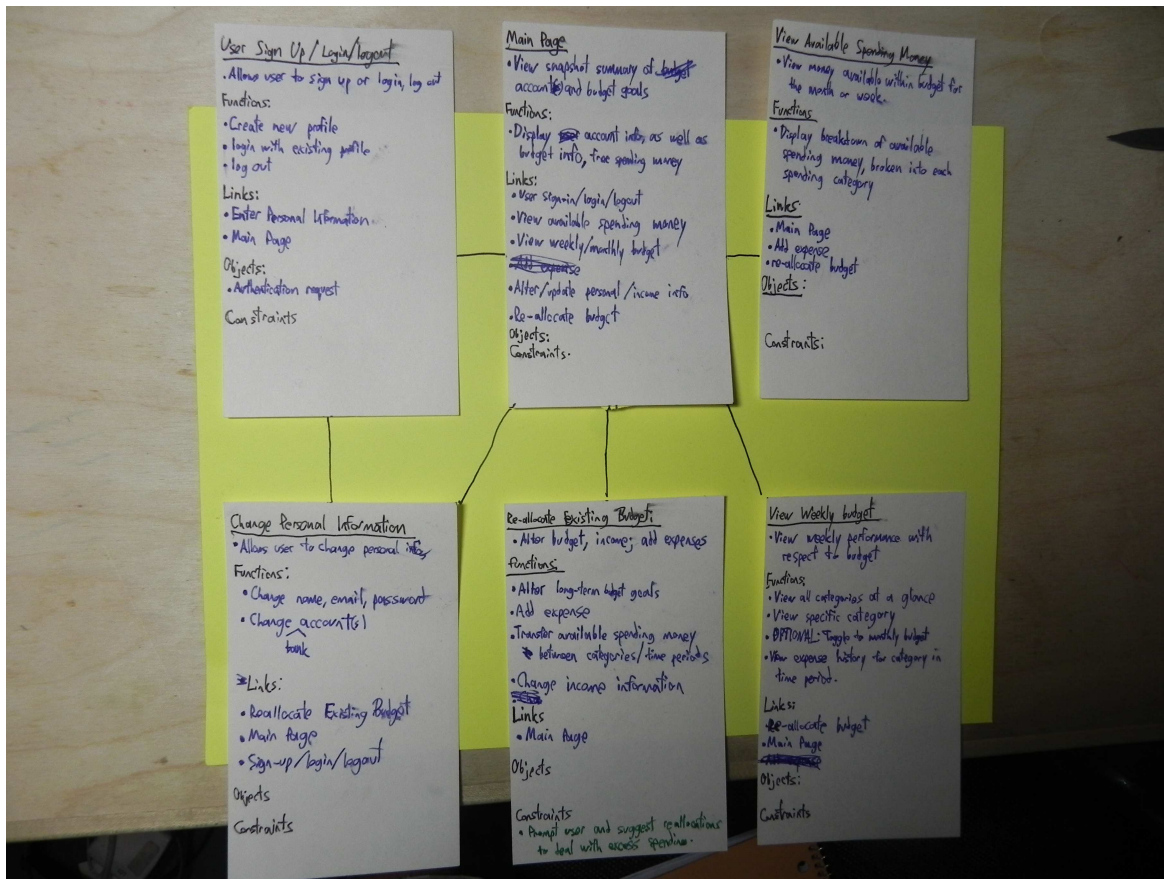 User Sign Up/Login/logout
• Allows user to sign up or login, log out
Functions:
• Create new profile
• login with existing profile
• log out
Links:
• Enter Personal Information
• Main Page
Objects:
• Authentication request
Constraints
Main Page
• View snapshot summary of budget
account(s) and budget goals
Functions:
• Display account info, as well as
budget info, free spending money
Links:
• User sign-in/login/logout
• View available spending money
• View weekly/monthly budget
Add expense
• Alter/update personal/income info
• Re-allocate budget
Objects:
Constraints.
View Available Spending Money
• View money available within budget for
the month or week.
Functions
• Display breakdown of available
spending money, broken into each
spending category
Links:
• Main Page
• Add expense
• re-allocate budget
Objects:
Constraints:
Change Personal Information
• Allows user to change personal info
Functions:
• Change name, email, password
• Change account(s)
bank
Links:
• Reallocate Existing Budget
• Main Page
• Sign-up/login/logout
Objects
Constraints
Re-allocate Existing Budget:
• Alter budget, income; add expenses
Functions:
• Alter long-term budget goals
• Add expense
• Transfer available spending money
between categories/time periods
• Change income information
Links
• Main Page
Objects
Constraints
• Prompt user and suggest reallocations
to deal with excess spending.
View Weekly budget
• View weekly performance with
respect to budget
Functions:
• View all categories at a glance
• View specific category
• OPTIONAL: Toggle to monthly budget
• View expense history for category in
time period.
Links:
• Re-allocate budget
• Main Page
Objects:
Constraints